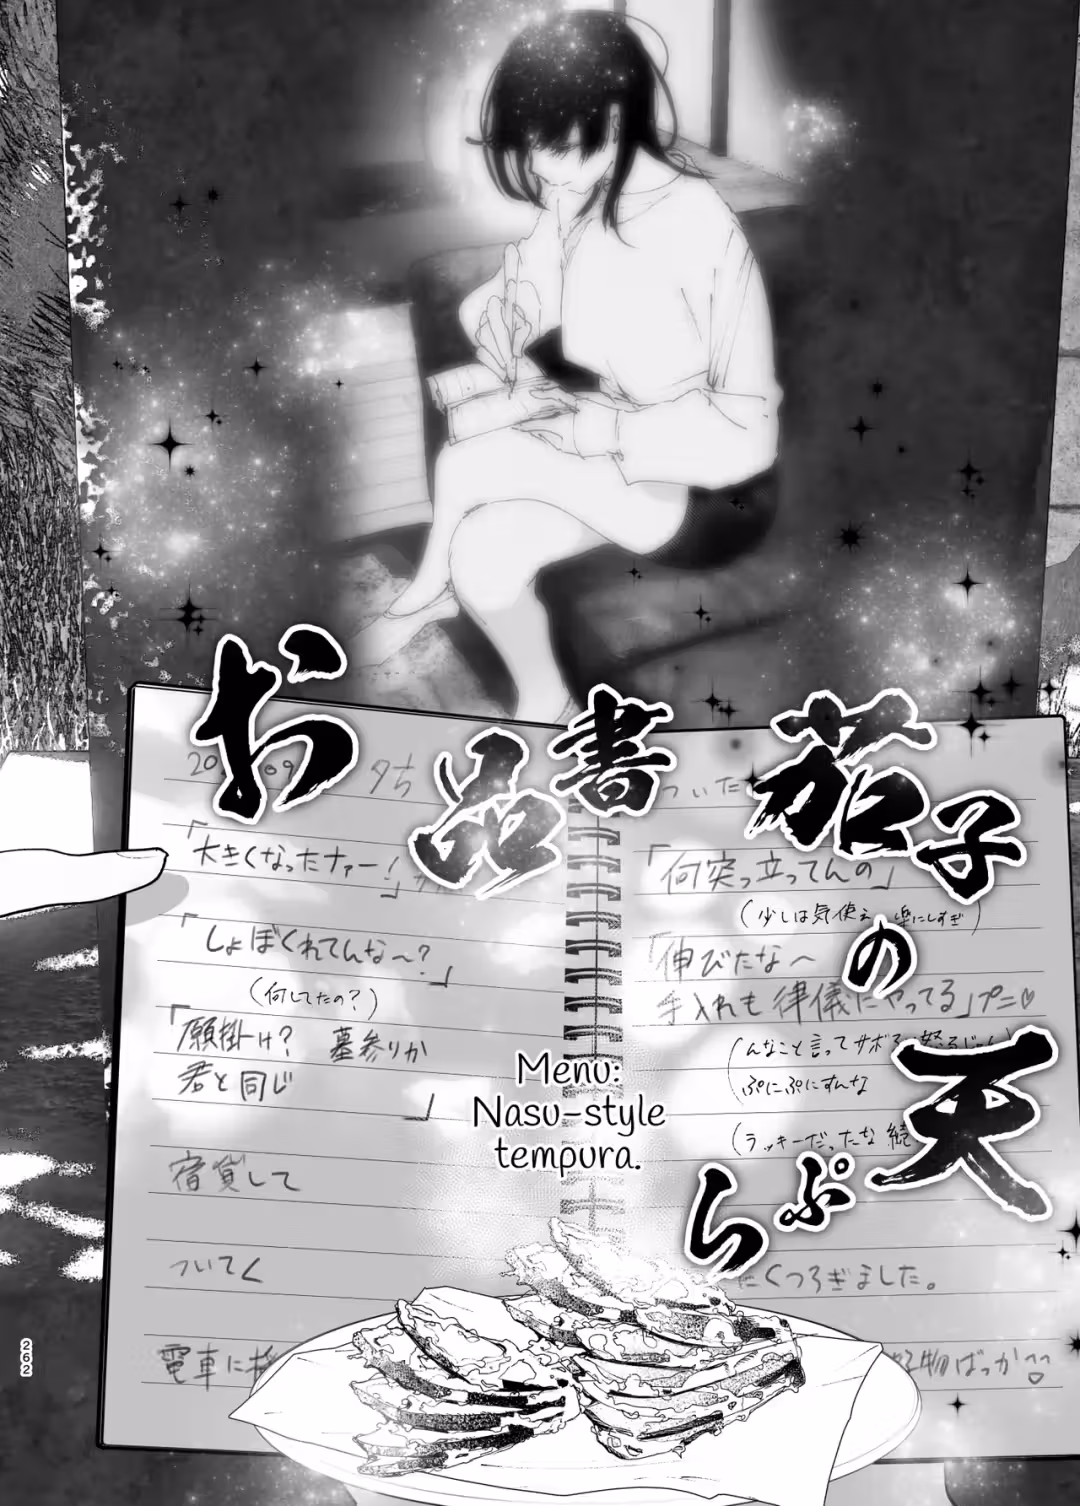 お品書
茄子の天ぷら
20
09
夕方
「大きくなったナァー!」
「しょぼくれてんな〜?」
(何してたの?)
「願掛け? 墓参りか
君と同じ
」
宿貸して
ついてく
電車に
ついた
「何突っ立ってんの」
(少しは気使え 楽にしすぎ)
「伸びたな〜
手入れも律儀にやってる」プニ♡
んなこと言ってサボ
ぷにぷにすんな
(ラッキーだったな 続
にくつろぎました。
好物ばっか♡
Menu:
Nasu-style
tempura.
262